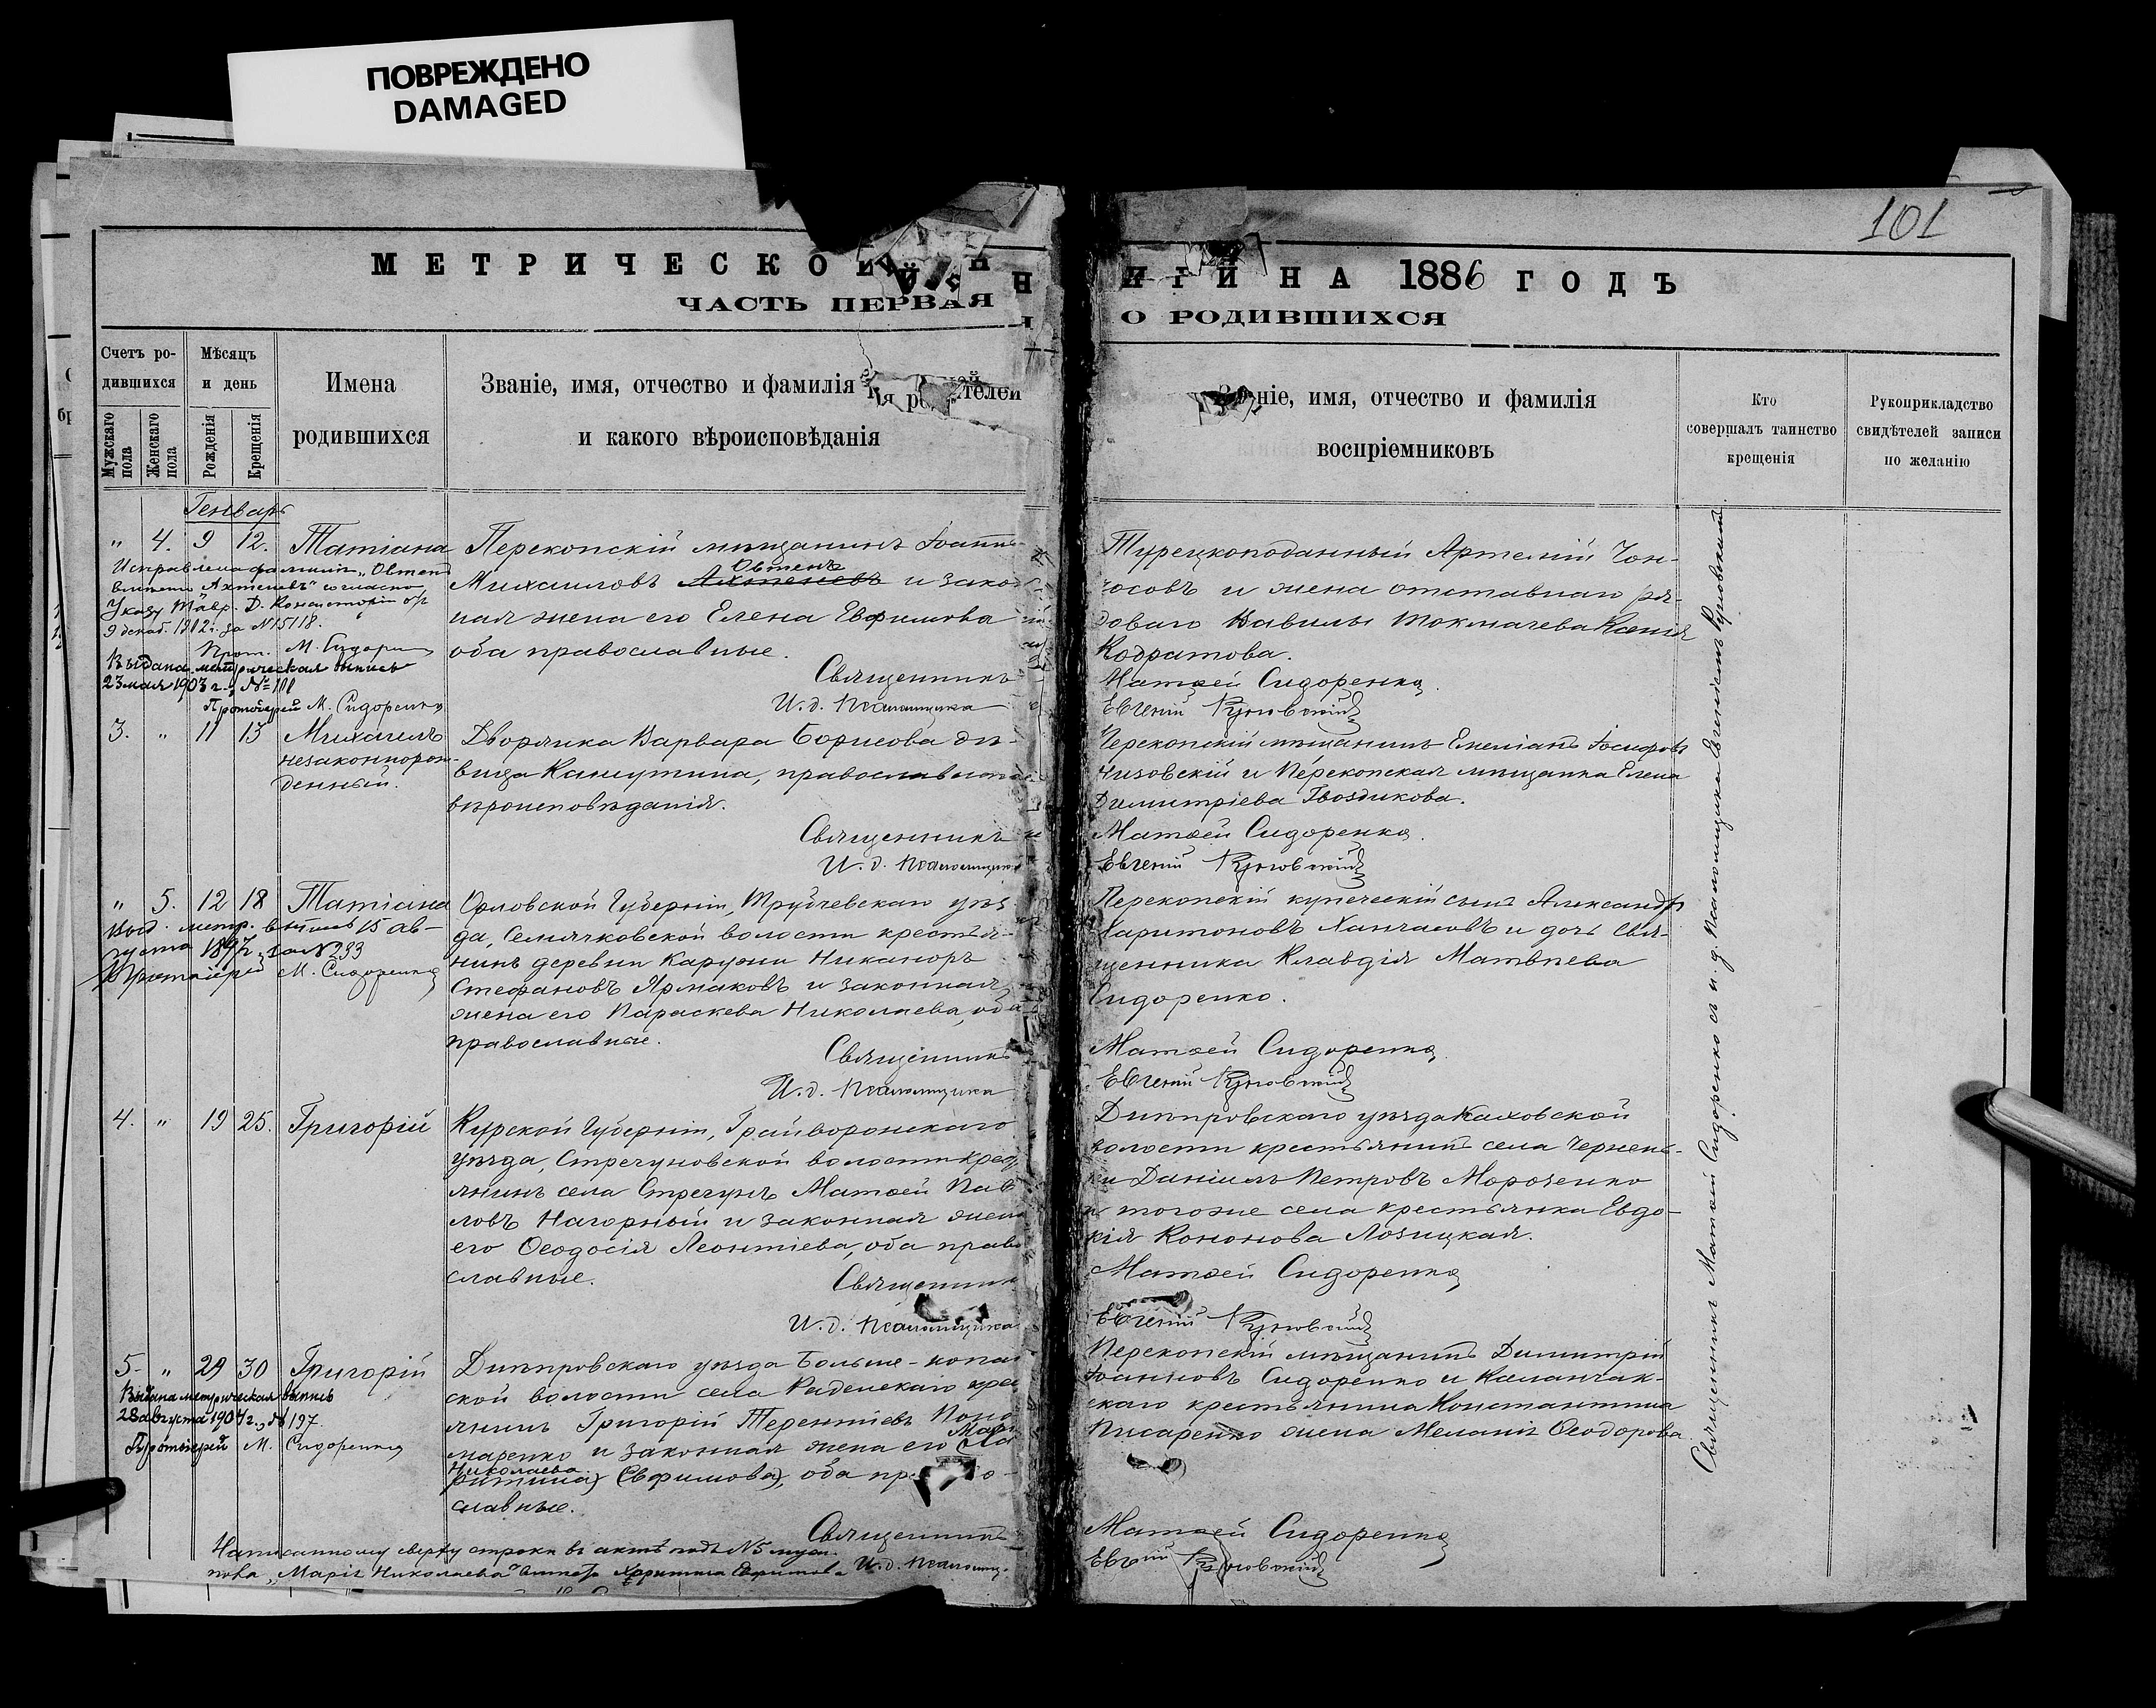 ПОВРЕЖДЕНО
DAMAGED
101
МЕТРИЧЕСКОЙ
ИГИ НА 1886 ГОДЪ
ЧАСТЬ ПЕРВАЯ
О РОДИВШИХСЯ
Счетъ ро-
дившихся
Мужскаго пола
Женскаго пола
Мѣсяцъ
и день
Рожденія
Крещенія
Имена
родившихся
Званіе, имя, отчество и фамилія родителей
и какого вѣроисповѣданія
Званіе, имя, отчество и фамилія
воспріемниковъ
Кто
совершалъ таинство
крещенія
Рукоприкладство
свидѣтелей записи
по желанію
Генварь
" 4. 9 12. Татіана
Исправлена фамилія "Овтенъ
вмѣсто "Ахтеневъ" согласно
Указу Тавр. Д. Консисторіи отъ
9 декаб. 1902 г. за №15118.
Прот. М. Сидоренко
Выдана метрическая выпись
23 мая 1903 г., № 111
Протоіерей М. Сидоренко
Перекопскій мѣщанинъ Іоаннъ
Овтенъ
Михаиловъ Ахтеневъ и закон
ная жена его Елена Евфимова
оба православные.
Священникъ
И. д. Псаломщика
Турецкоподанный Артемій Чон-
госовъ и жена отставнаго ря-
доваго Вавилы Токмачева Ксенія
Кодратова.
Матѳей Сидоренко.
Евгеній
3. " 11 13 Михаилъ
незаконнорож-
денный.
Дворянка Варвара Борисова дѣ-
вица Кашутина, православнаго
вѣроисповѣданія.
Священникъ
И. д. Псаломщика
Перекопскій мѣщанинъ Емеліанъ Іосифовъ
Низовскій и Перекопская мѣщанка Елена
Димитріева Гвоздикова.
Матѳей Сидоренко.
Евгеній
" 5. 12 18 Татіана
Выд. метр. выпись 15 ав-
густа 1897 г. за №233
Протоіерей М. Сидоренко
Орловской Губерніи, Трубчевскаго уѣз
да, Семячковской волости крестья-
нинъ деревни Каружи Никаноръ
Стефановъ Ярмаковъ и законная
жена его Параскева Николаева, оба
православные.
Священникъ
И. д. Псаломщика
Перекопскій купеческій сынъ Александръ
Харитоновъ Ханчасовъ и дочь Свя-
щенника Клавдія Матвѣева
Сидоренко.
Матѳей Сидоренко
Евгеній
4. " 19 25. Григорій
Курской Губерніи, Грайворонскаго
уѣзда, Стрегуновской волости крест
янинъ села Стрегунъ Матѳей Пав
ловъ Нагорный и законная жена
его Ѳеодосія Леонтіева, оба право
славные.
Священникъ
И. д. Псаломщика
Днѣпровскаго уѣзда Каховской
волости крестьянинъ села Чернень-
ки Даніилъ Петровъ Мороченко
и тогоже села крестьянка Евдо-
кія Кононова Лозицкая.
Матѳей Сидоренко
Евгеній
5. " 29 30 Григорій
Выдана метрическая выпись
28 августа 1904 г., № 197.
Протоіерей М. Сидоренко
Днѣпровскаго уѣзда Больше-копан
ской волости села Раденскаго крес
янинъ Григорій Терентіевъ Поно
Марія
маренко и законная жена его
Николаева
(Евфимова), оба право-
славные.
Священникъ
И. д. Псаломщ.
Перекопскій мѣщанинъ Димитрій
Іоанновъ Сидоренко и Каланчак-
скаго крестьянина Константина
Писаренко жена Меланія Ѳеодорова
Матѳей Сидоренко
Евгеній
Написанному сверху строки въ актѣ подъ №5 муж.
пола, "Марія Николаева" вмѣсто Харитина Евфимова
Священникъ Матѳей Сидоренко съ и. д. Псаломщика Евгеніемъ